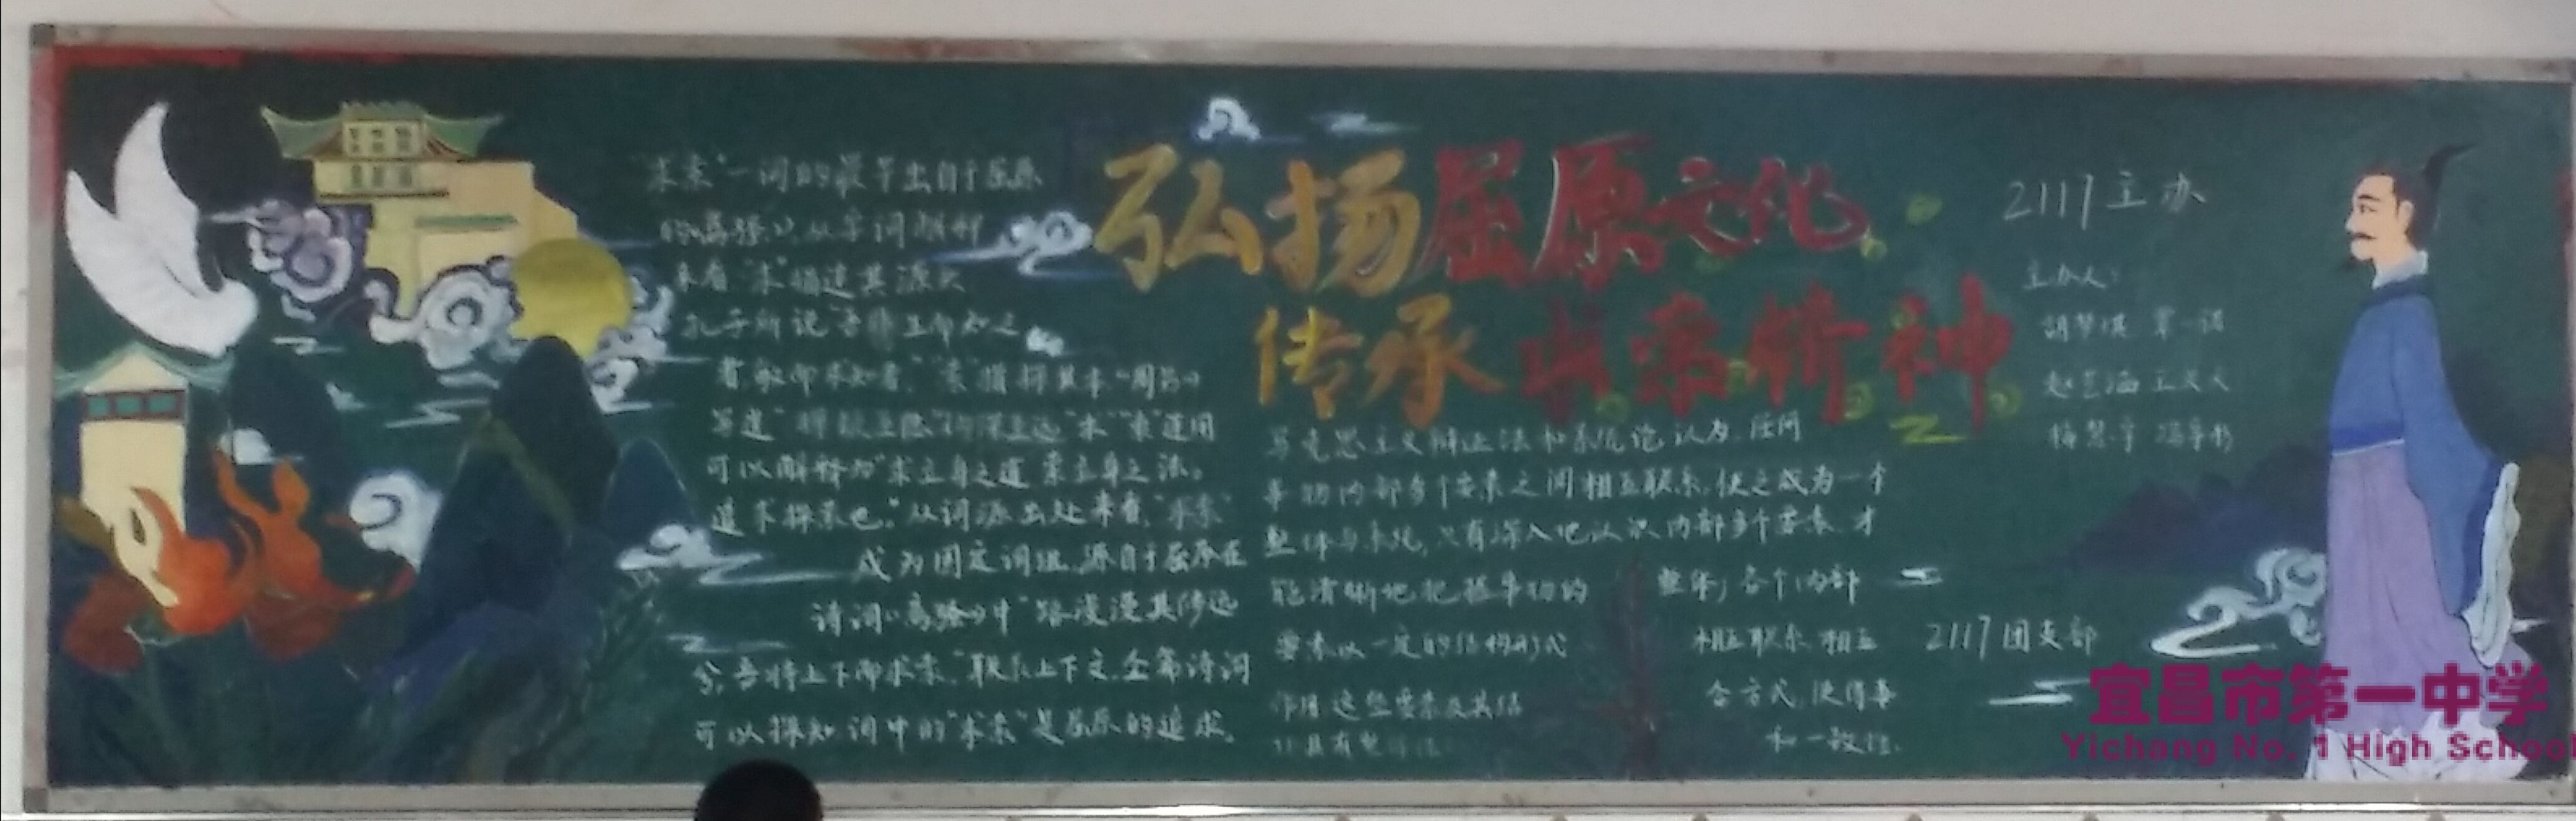 弘扬屈原文化
传承求索精神
"求索"一词的最早出自于屈原
的《离骚》,从字词
来看"求"描述其源头
孔子所说"吾非生而知之
者,敏而求知者,""索"指探其本,《周易》
写道"探赜索隐""钩深至远""求""索"连用
可以解释为"求立身之道 索立身之法。
道不探索也。"从词源出处来看,"求索"
成为固定词组,源自于屈原在
诗词《离骚》中"路漫漫其修远
兮,吾将上下而求索,"联系上下文,全篇诗词
可以探知词中的"求索"是屈原的追求。
马克思主义辩证法和系统论认为,任何
事物内部多个要素之间相互联系,使之成为一个
整体与系统,只有深入地认识内部多个要素,才
能清晰地把握事物的 整体,各个内部
要素以一定的结构形式 相互联系,相互
作用 这些要素及其结 合方式,使得事
具有整 和一致性.
2117主办
主办人:
2117团支部
宜昌市第一中学
Yichang No. 1 High School